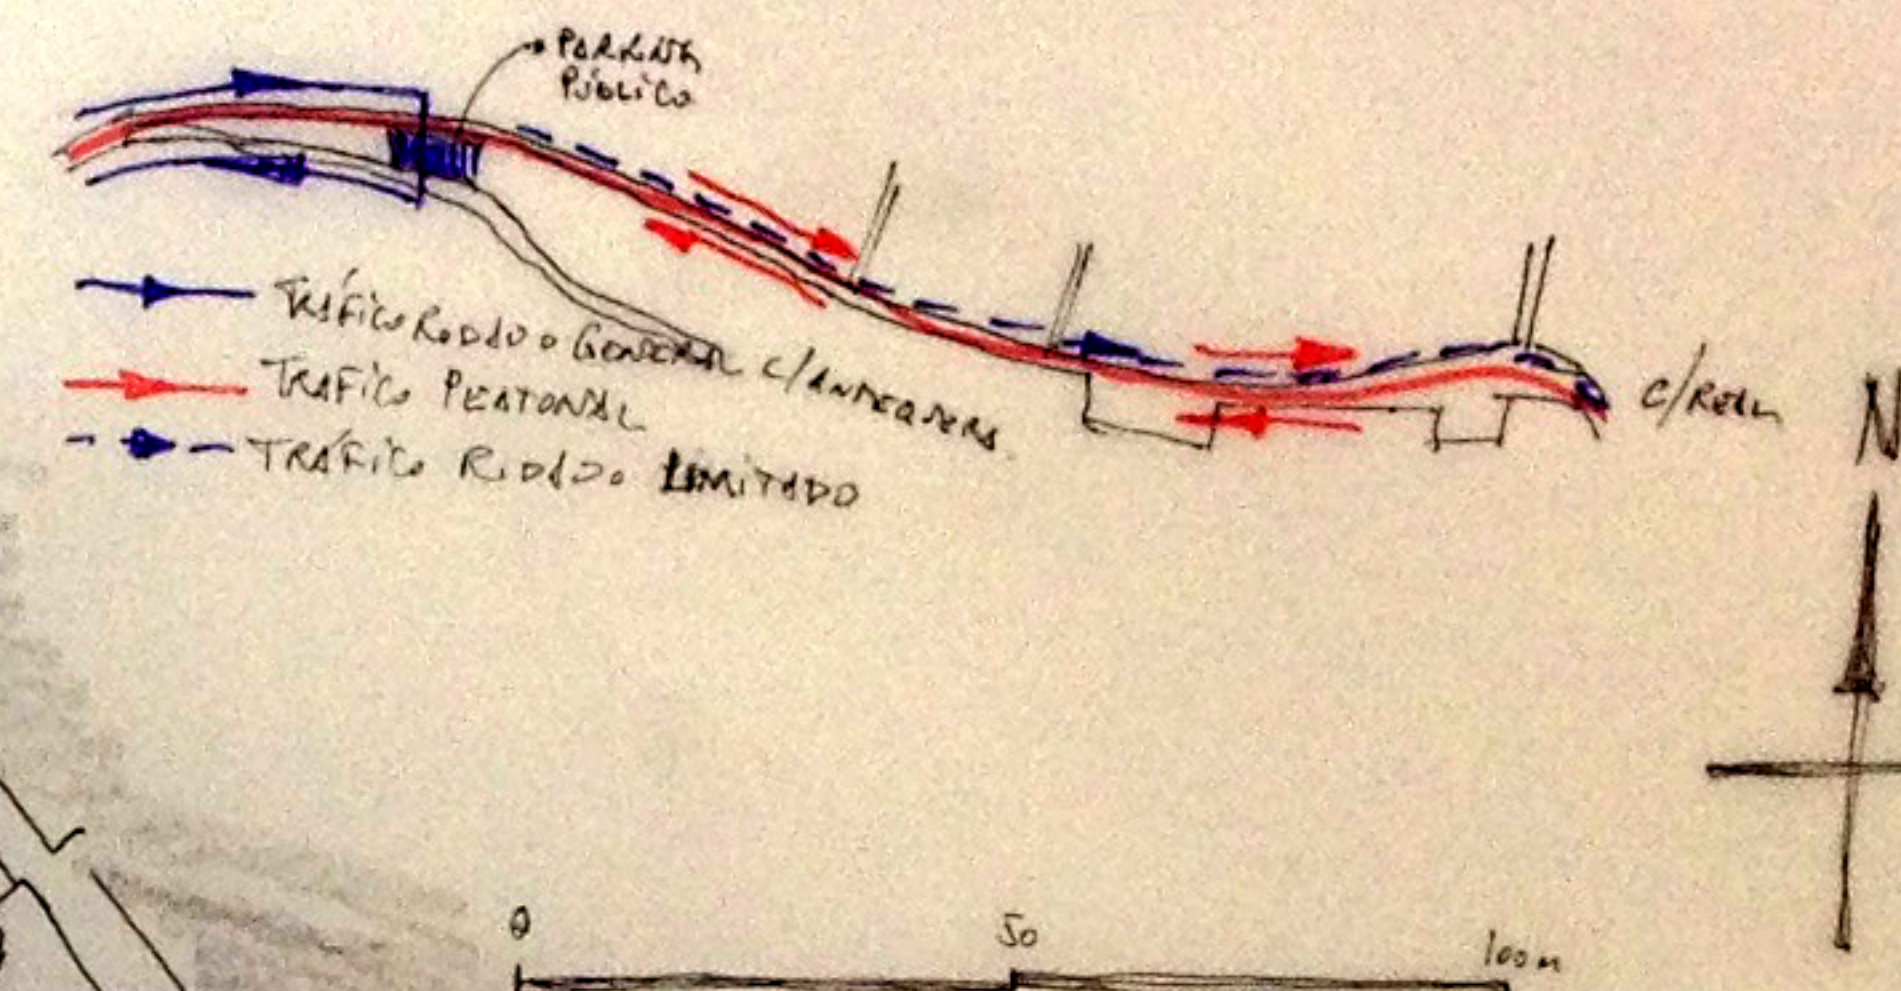 PARKING
PÚBLICO
TRÁFICO RODADO GENERAL C/ANTEQUERA
TRAFICO PEATONAL
TRÁFICO RODADO LIMITADO
C/REAL
N
0 50 100 m